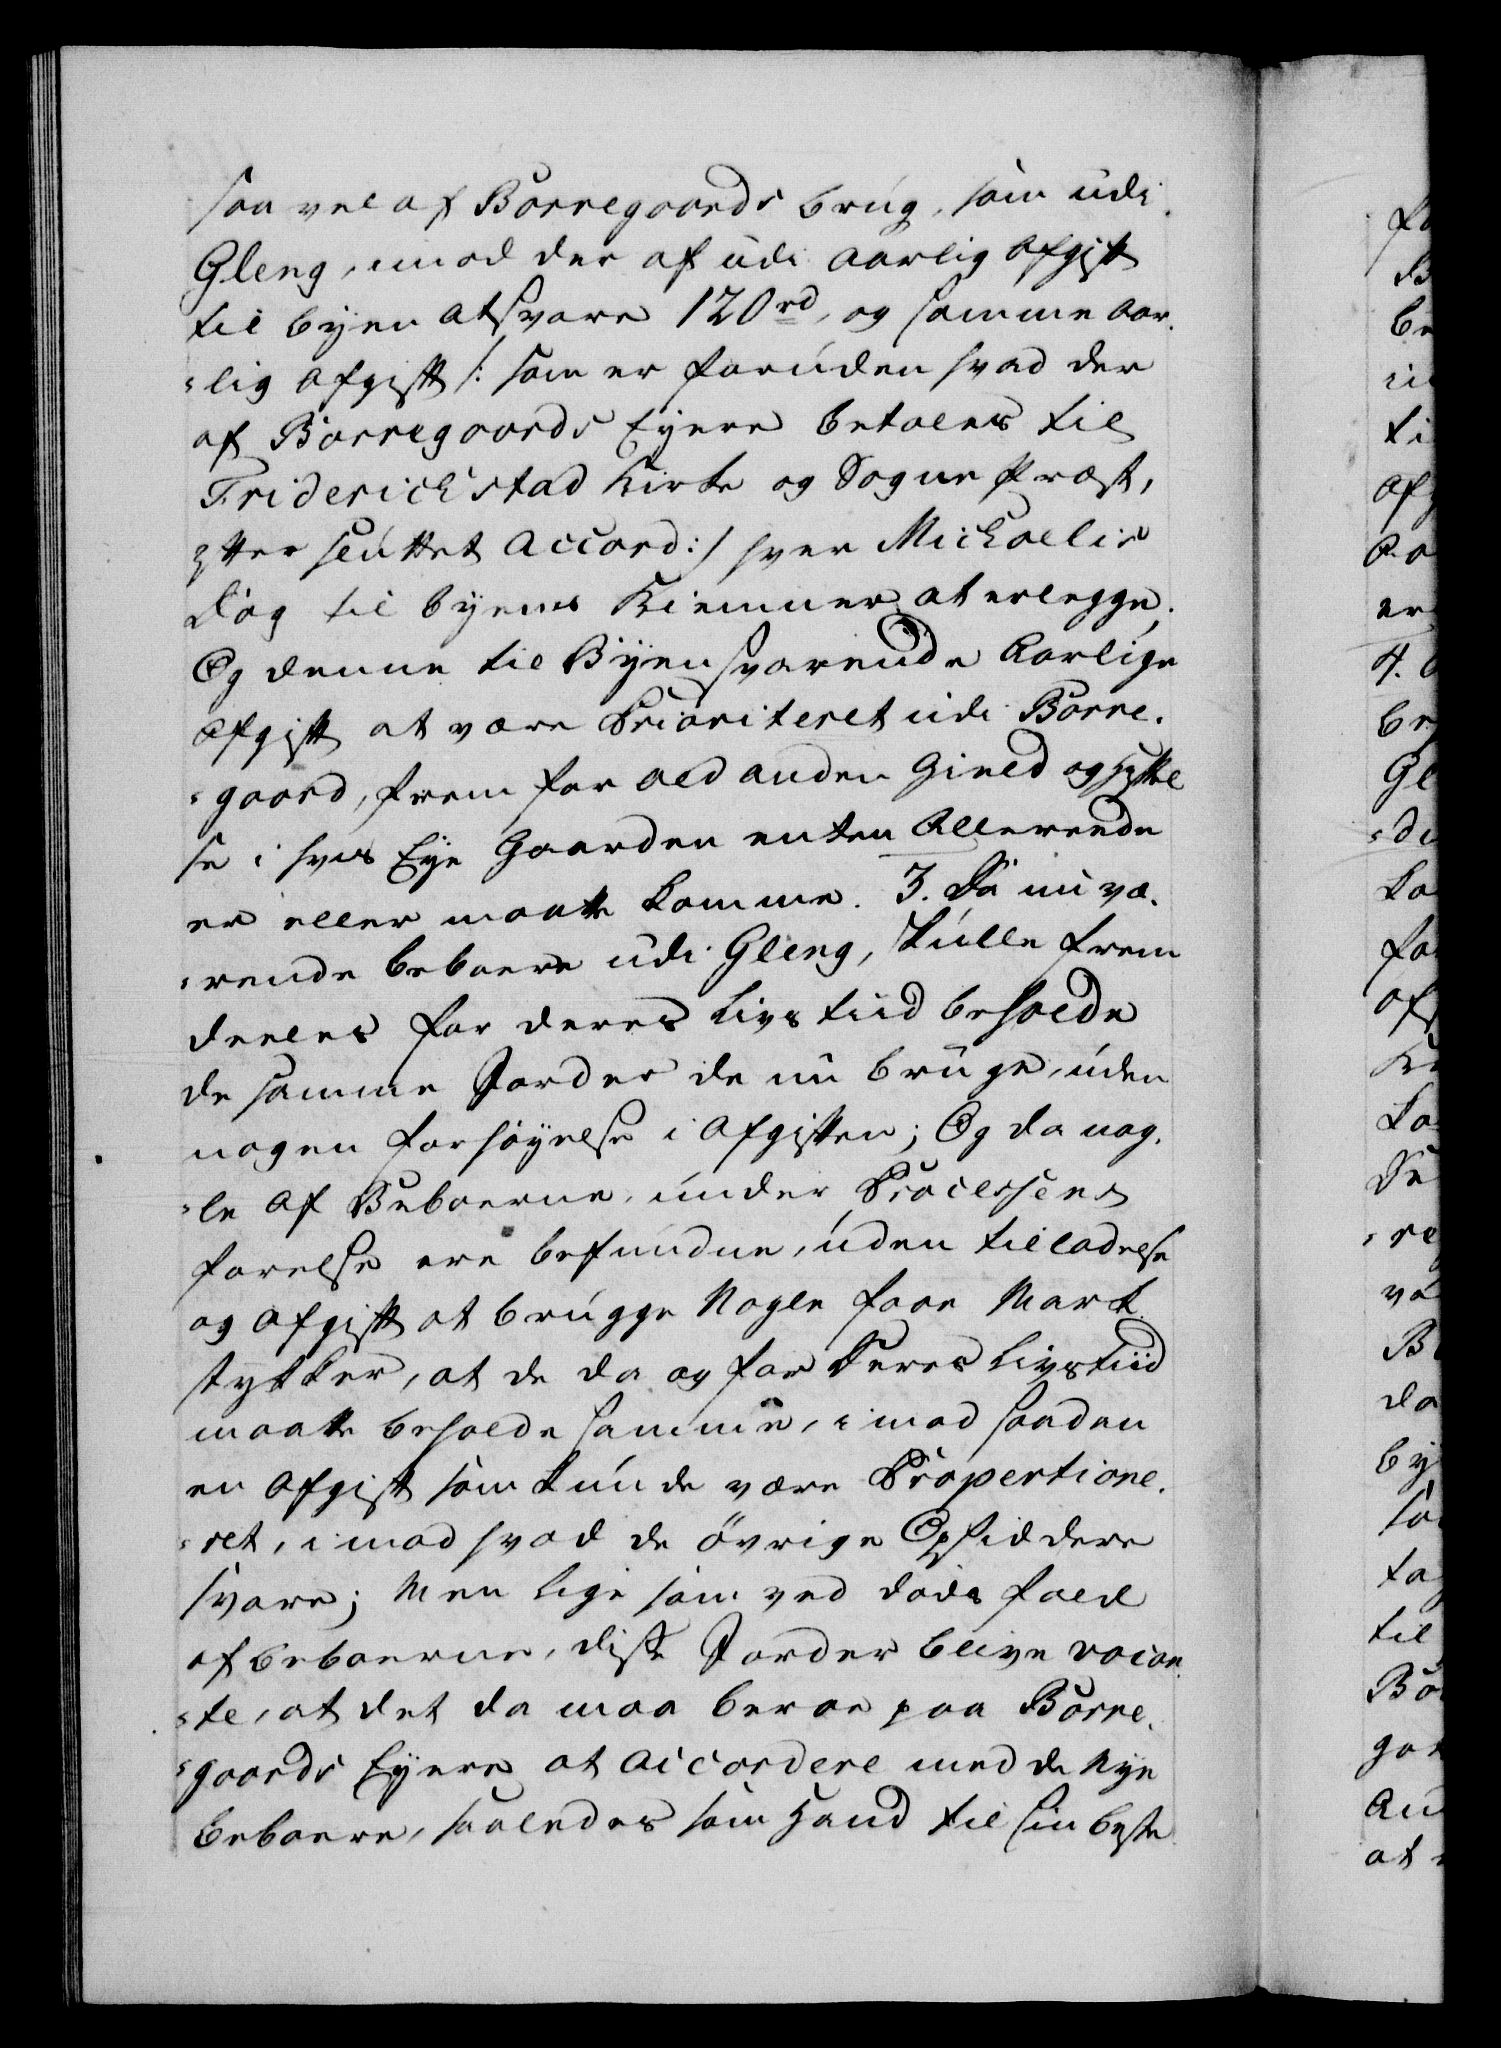 saa vel af Borregaards brug, som udi
Gleng, imod der af udi Aarlig Afgift
til byen at svare 120 rd, og samme Aar-
lig Afgift /: som er foruden hvad der
af Borregaards Eyere betales til
Friderichstad Kirke og Sogne Præst,
efter sluttet Accord :/ hver Michaelis
Dag til byens Kiemner at erlegge.
Og denne til Byen svarende Aarlige
Afgift at være Prioriteret udi Borre-
gaard, frem for ald anden Gield og Hefftel
se i hvis Eye Gaarden enten Allerende
er eller maatte komme. 3. De nu væ-
rende beboere udi Gleng, skulle frem
deeles for deres Livs tiid beholde
de samme Jorder de nu bruge, uden
nogen forhøyelse i Afgiften; Og da nog-
le af Beboerne, under Processens
førelse ere befundne, uden tilladelse
og Afgift at brugge Nogle faae Mark
stykker, at de da og for Deres Livstiid
maatte beholde samme, imod saadan
en Afgift som kunde være Propertione-
ret, imod hvad de øvrige Opsiddere
svare; Men lige som ved døds fald
af beboerne, disse Jorder blive vacan-
te, at det da maa beroe paa Borre-
gaards Eyere at accordere med de Nye
beboere, saaledes som hand til sin beste